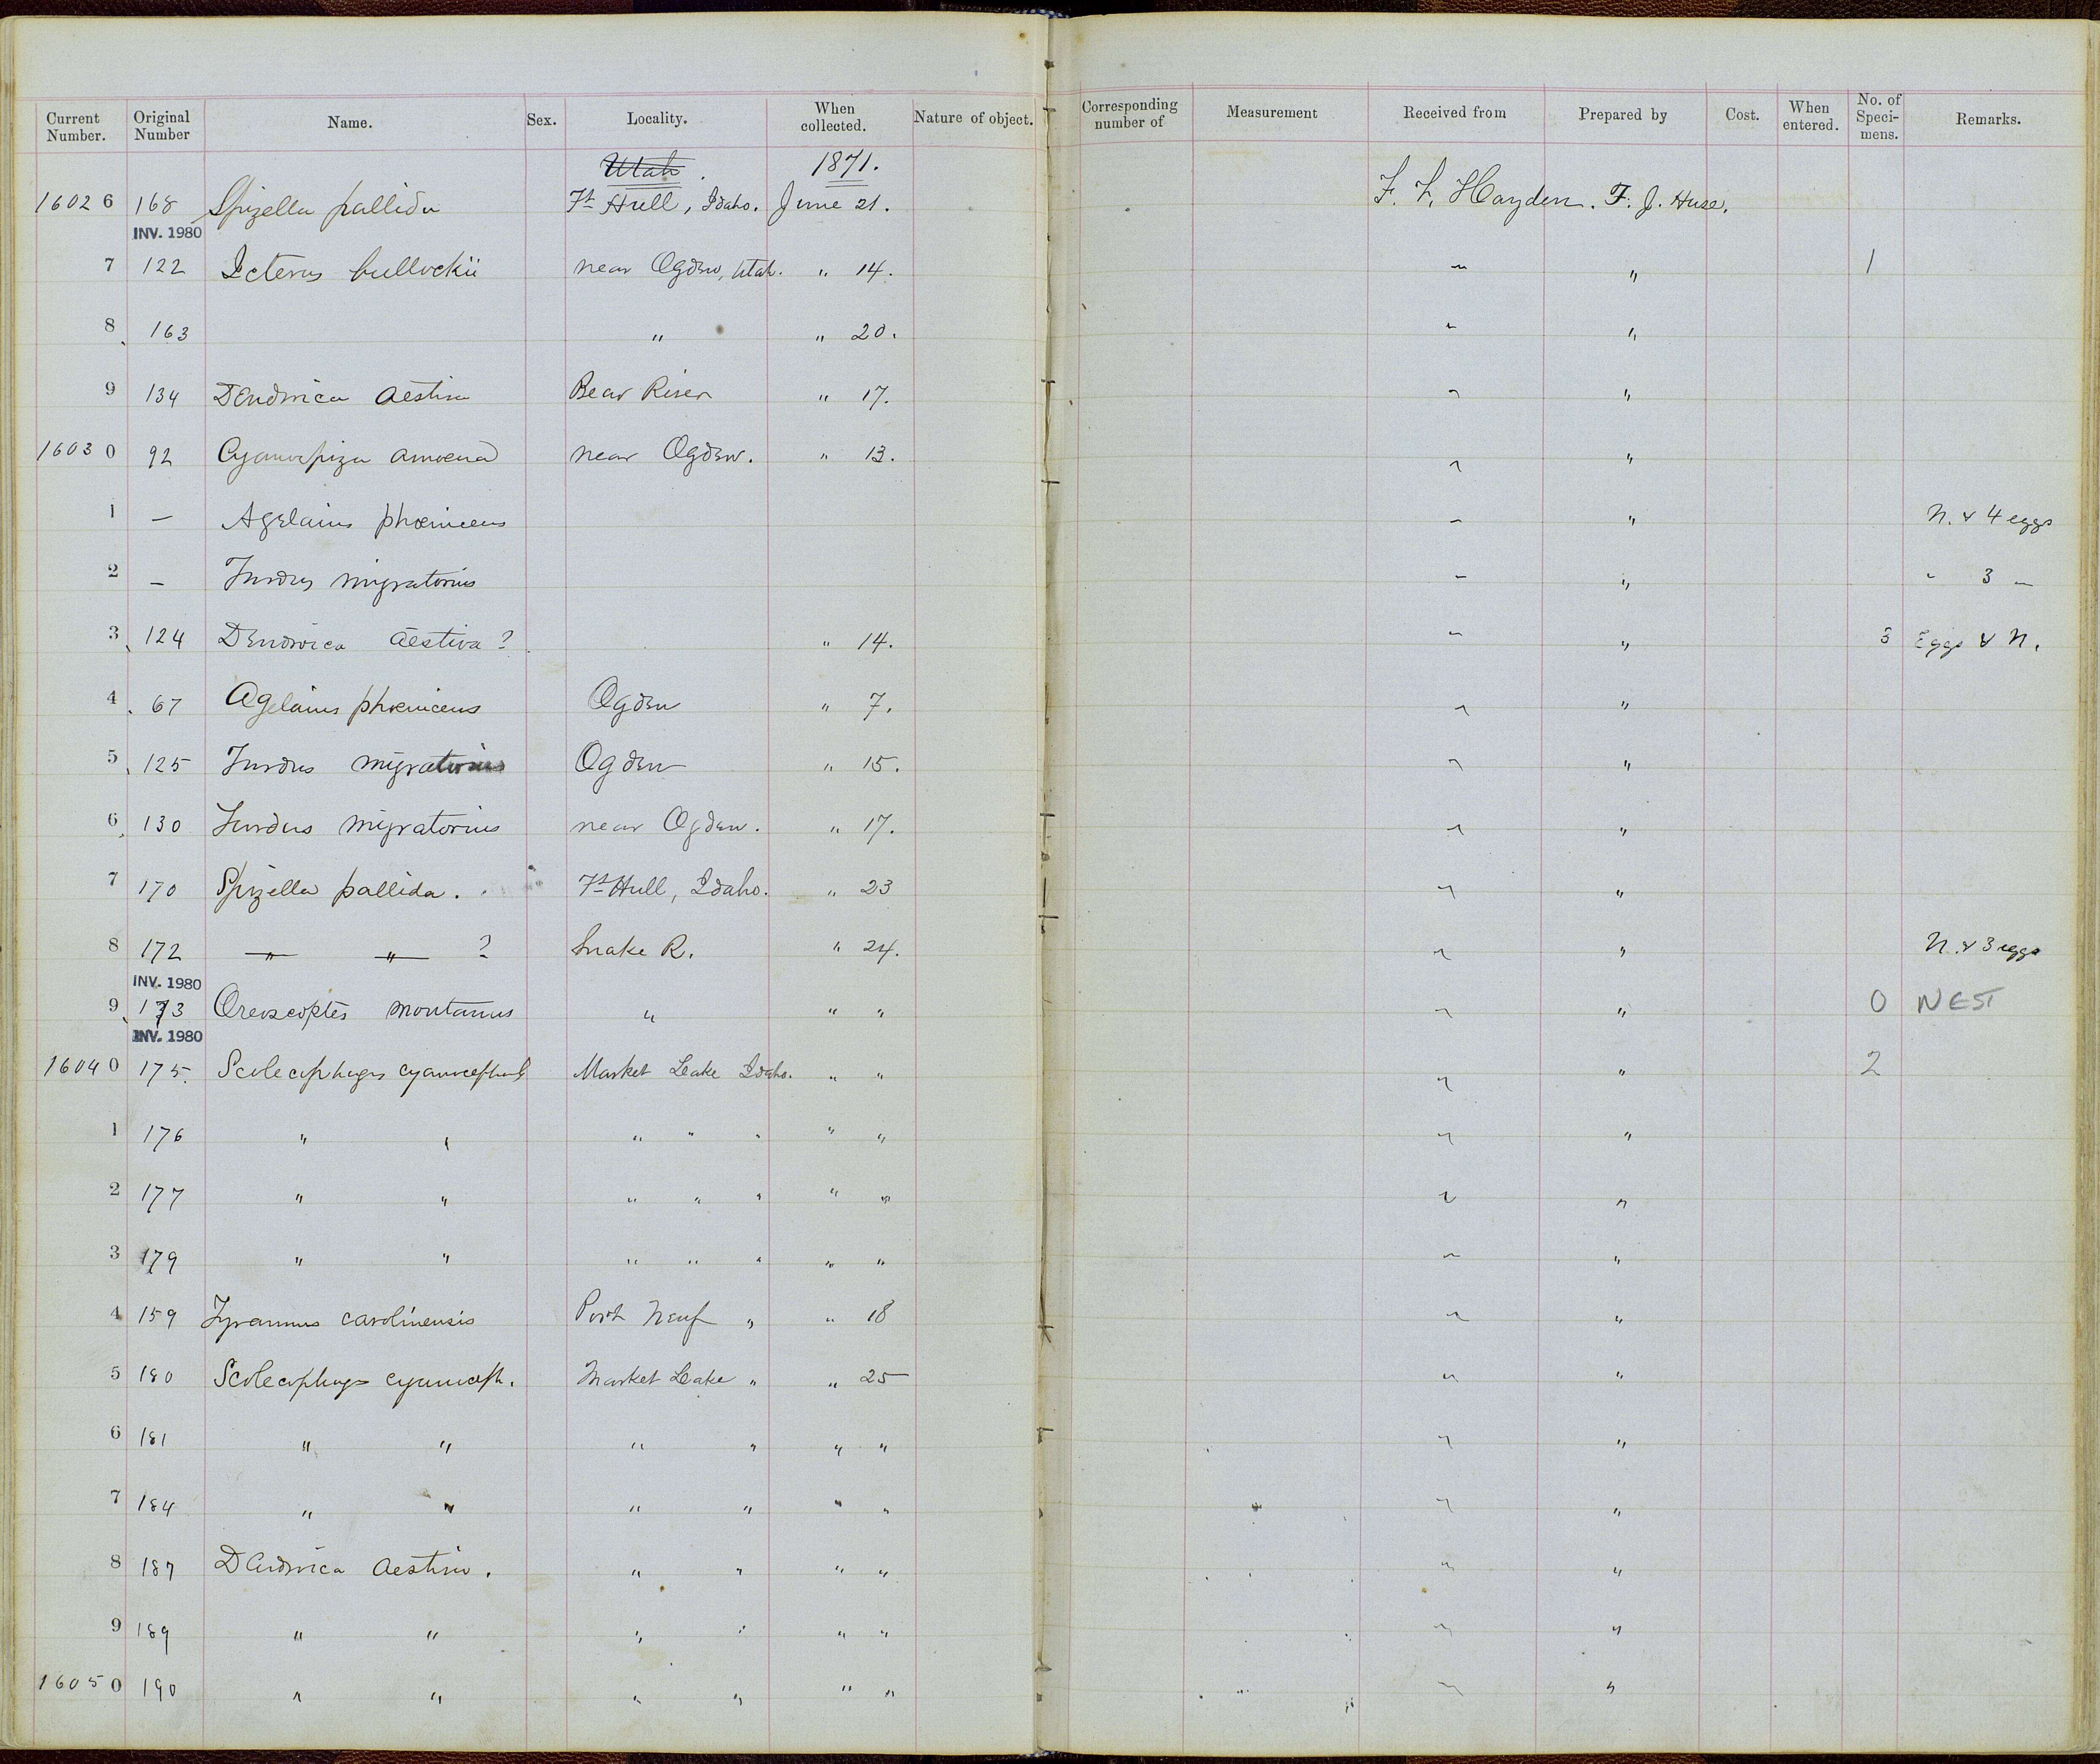 Current Number. Original Number Name. Sex. Locality. When collected. Nature of object. Corresponding number of Measurement Received from Prepared by Cost. When entered. No. of Speci-mens. Remarks.
Utah. 1871.
16026 168 Spizella pallida Ft Hall, Idaho. June 21. F. V. Hayden. F. J. Huse.
INV. 1980
7 122 Icterus bullockii near Ogden, Utah. " 14. " " 1
8 163 " " 20. " "
9 134 Dendroica aestiva Bear River " 17. " "
16030 92 Cyanospiza amoena near Ogden. " 13. " "
1 — Agelaius phoeniceus " " N. & 4 eggs
2 — Turdus migratorius " " " 3 "
3 124 Dendroica aestiva? " 14. " " 3 Eggs & N.
4 67 Agelaius phoeniceus Ogden " 7. " "
5 125 Turdus migratorius Ogden " 15. " "
6 130 Turdus migratorius near Ogden. " 17. " "
7 170 Spizella pallida. Ft Hall, Idaho. " 23 " "
8 172 —"— —"— ? Snake R. " 24. " " N. & 3 eggs
INV. 1980
9 173 Oreoscoptes montanus " " " " " 0 NEST
INV. 1980
16040 175 Scolecophagus cyanocephal Market Lake Idaho. " " " " 2
1 176 " " " " " " " " "
2 177 " " " " " " " " "
3 179 " " " " " " " " "
4 159 Tyrannus carolinensis Port Neuf " " 18 " "
5 180 Scolecophagus cyanoceph. Market Lake " " 25 " "
6 181 " " " " " " " "
7 184 " " " " " " " "
8 187 Dendroica aestiva. " " " " " "
9 189 " " " " " " " "
16050 190 " " " " " " " "